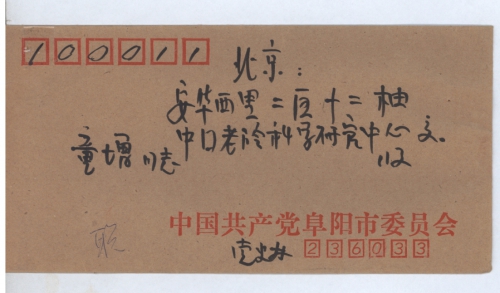 100011
北京：
安华西里二区十二楼
中国老龄科学研究中心交
童增同志 收
中国共产党阜阳市委员会
党史办 236033